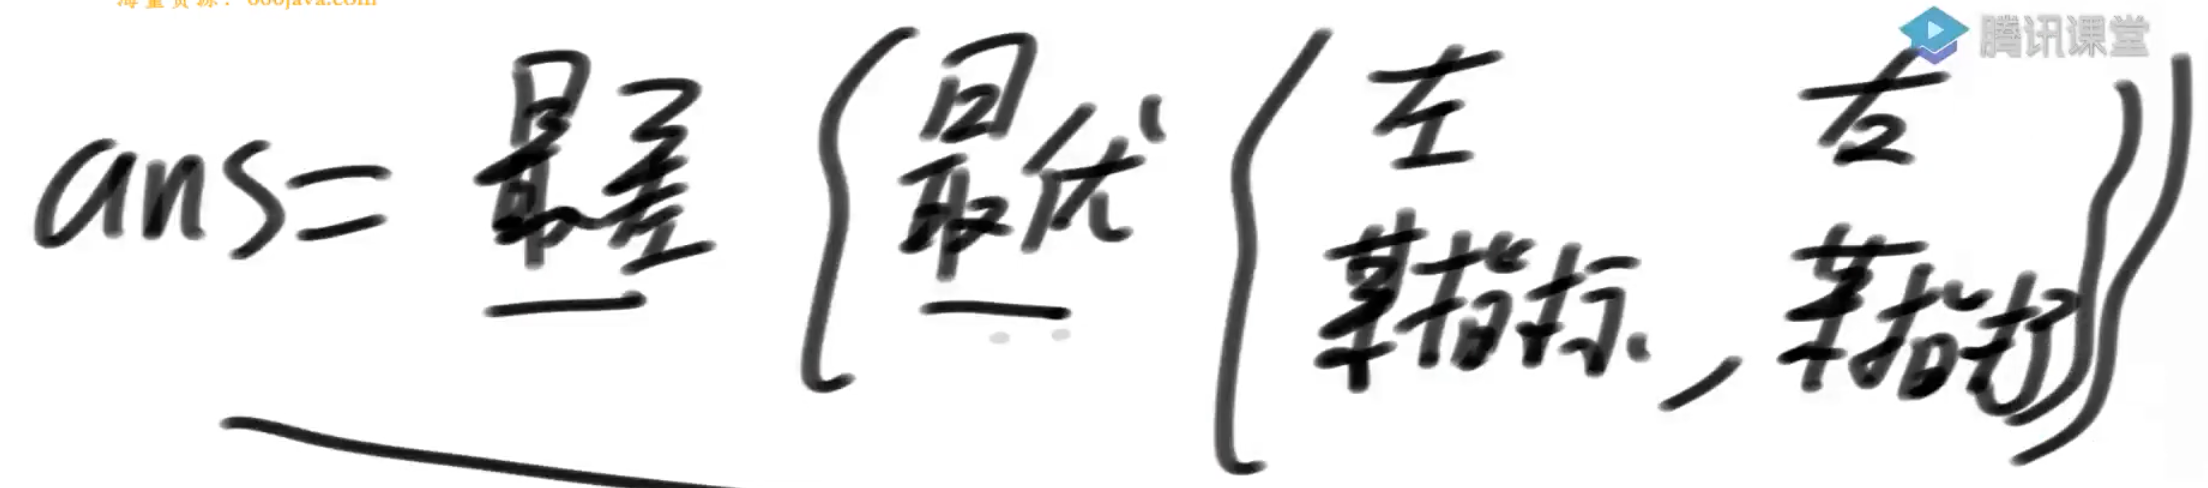 海量资源：666java.com
腾讯课堂
ans= 最差 { 最优 { 左 右
某指标, 某指标 } }